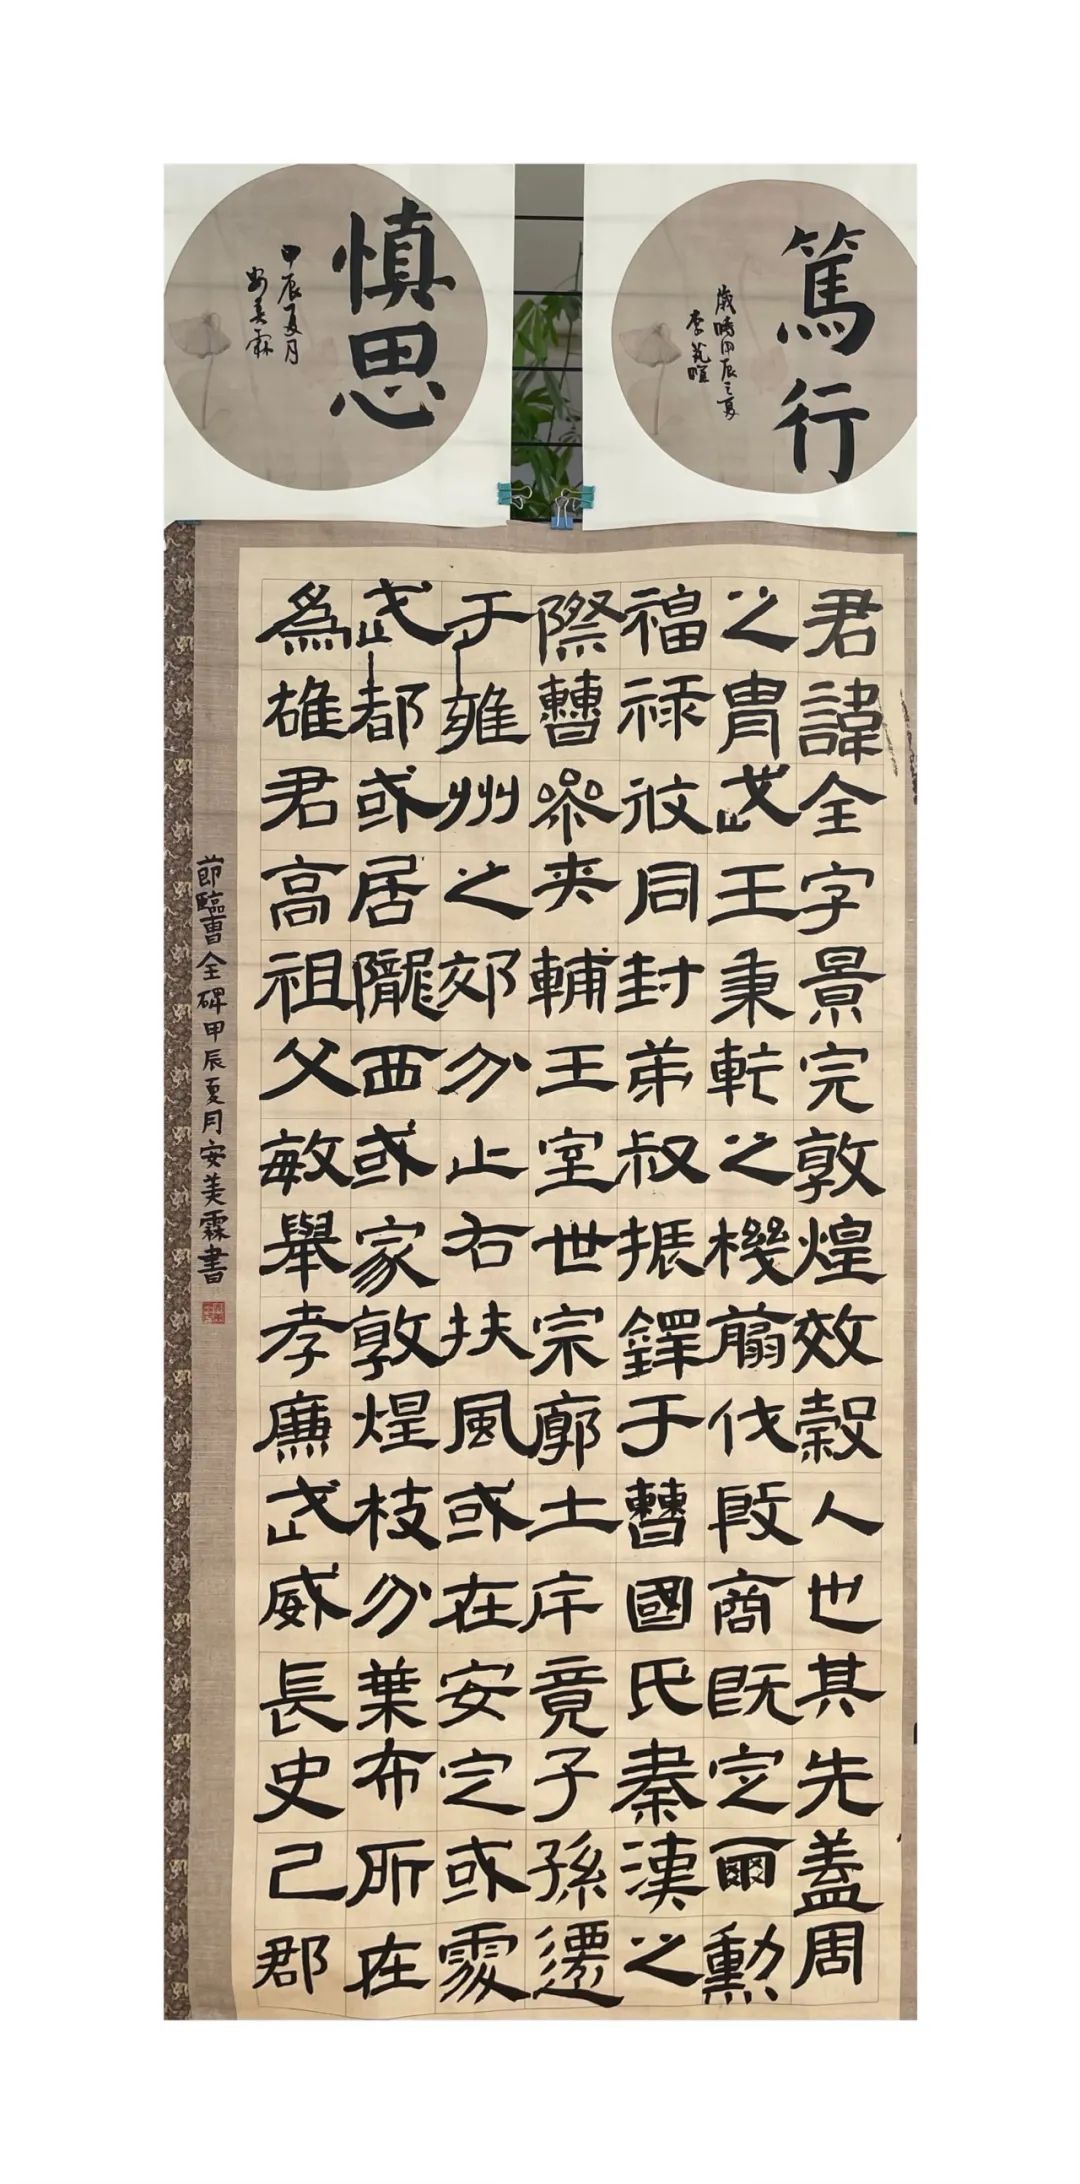 篤行
歲時甲辰之夏
慎思
甲辰夏月
安美霖
君諱全字景完敦煌效穀人也其先蓋周
之胄武王秉乾之機翦伐殷商既定爾勳
福祿攸同封弟叔振鐸于曹國氏秦漢之
際曹參夾輔王室世宗廓土斥竟子孫遷
于雍州之郊分止右扶風或在安定或處
武都或居隴西或家敦煌枝分葉布所在
為雄君高祖父敏舉孝廉武威長史已郡
節臨曹全碑甲辰夏月安美霖書